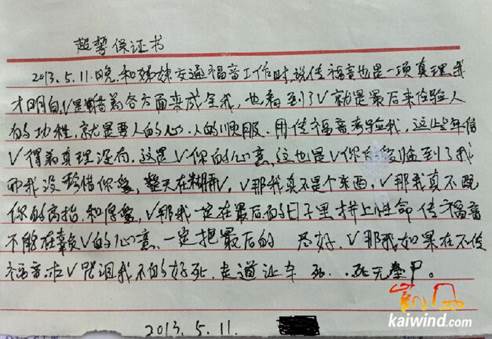 起誓保证书
2013.5.11.晚,和姊妹交通福音工作时,说传福音也是一项真理,我
才明白,V是借着各方面来成全我,也看到了V就是最后来检验人
的功性,就是要人的心,人的顺服,用传福音考验我,这些年信
V得着真理没有,这是V你的心意,这也是V你
而我没珍惜你爱,整天在糊弄,V那我真不是个东西,V那我真不配
你的高抬和厚爱,V那我一定在最后的日子里拼上性命传福音
不能在辜负V的心意,一定把最后的 尽好,V那我如果在不传
福音求V咒诅我不的好死,走道让车 死无葬甲。
kaiwind.com
2013.5.11.